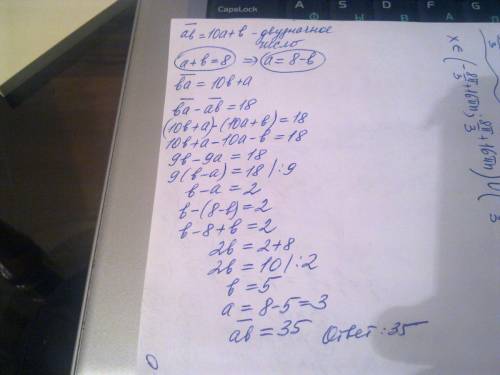 CapsLock
ab = 10a+b - двузначное
число
a+b=8 ⇒ a=8-b
ba = 10b+a
ba - ab = 18
(10b+a)-(10a+b)=18
10b+a-10a-b=18
9b-9a=18
9(b-a)=18 |:9
b-a=2
b-(8-b)=2
b-8+b=2
2b=2+8
2b=10 |:2
b=5
a=8-5=3
ab=35 Ответ: 35